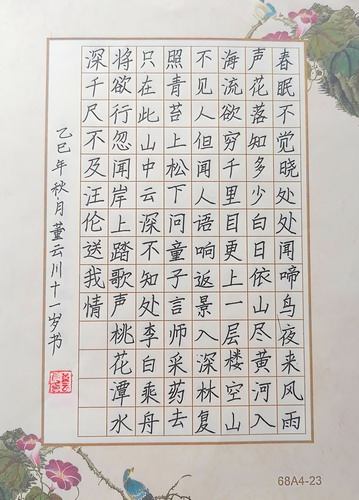 春眠不觉晓处处闻啼鸟夜来风雨
声花落知多少白日依山尽黄河入
海流欲穷千里目更上一层楼空山
不见人但闻人语响返景入深林复
照青苔上松下问童子言师采药去
只在此山中云深不知处李白乘舟
将欲行忽闻岸上踏歌声桃花潭水
深千尺不及汪伦送我情
乙巳年秋月董云川十一岁书
68A4-23